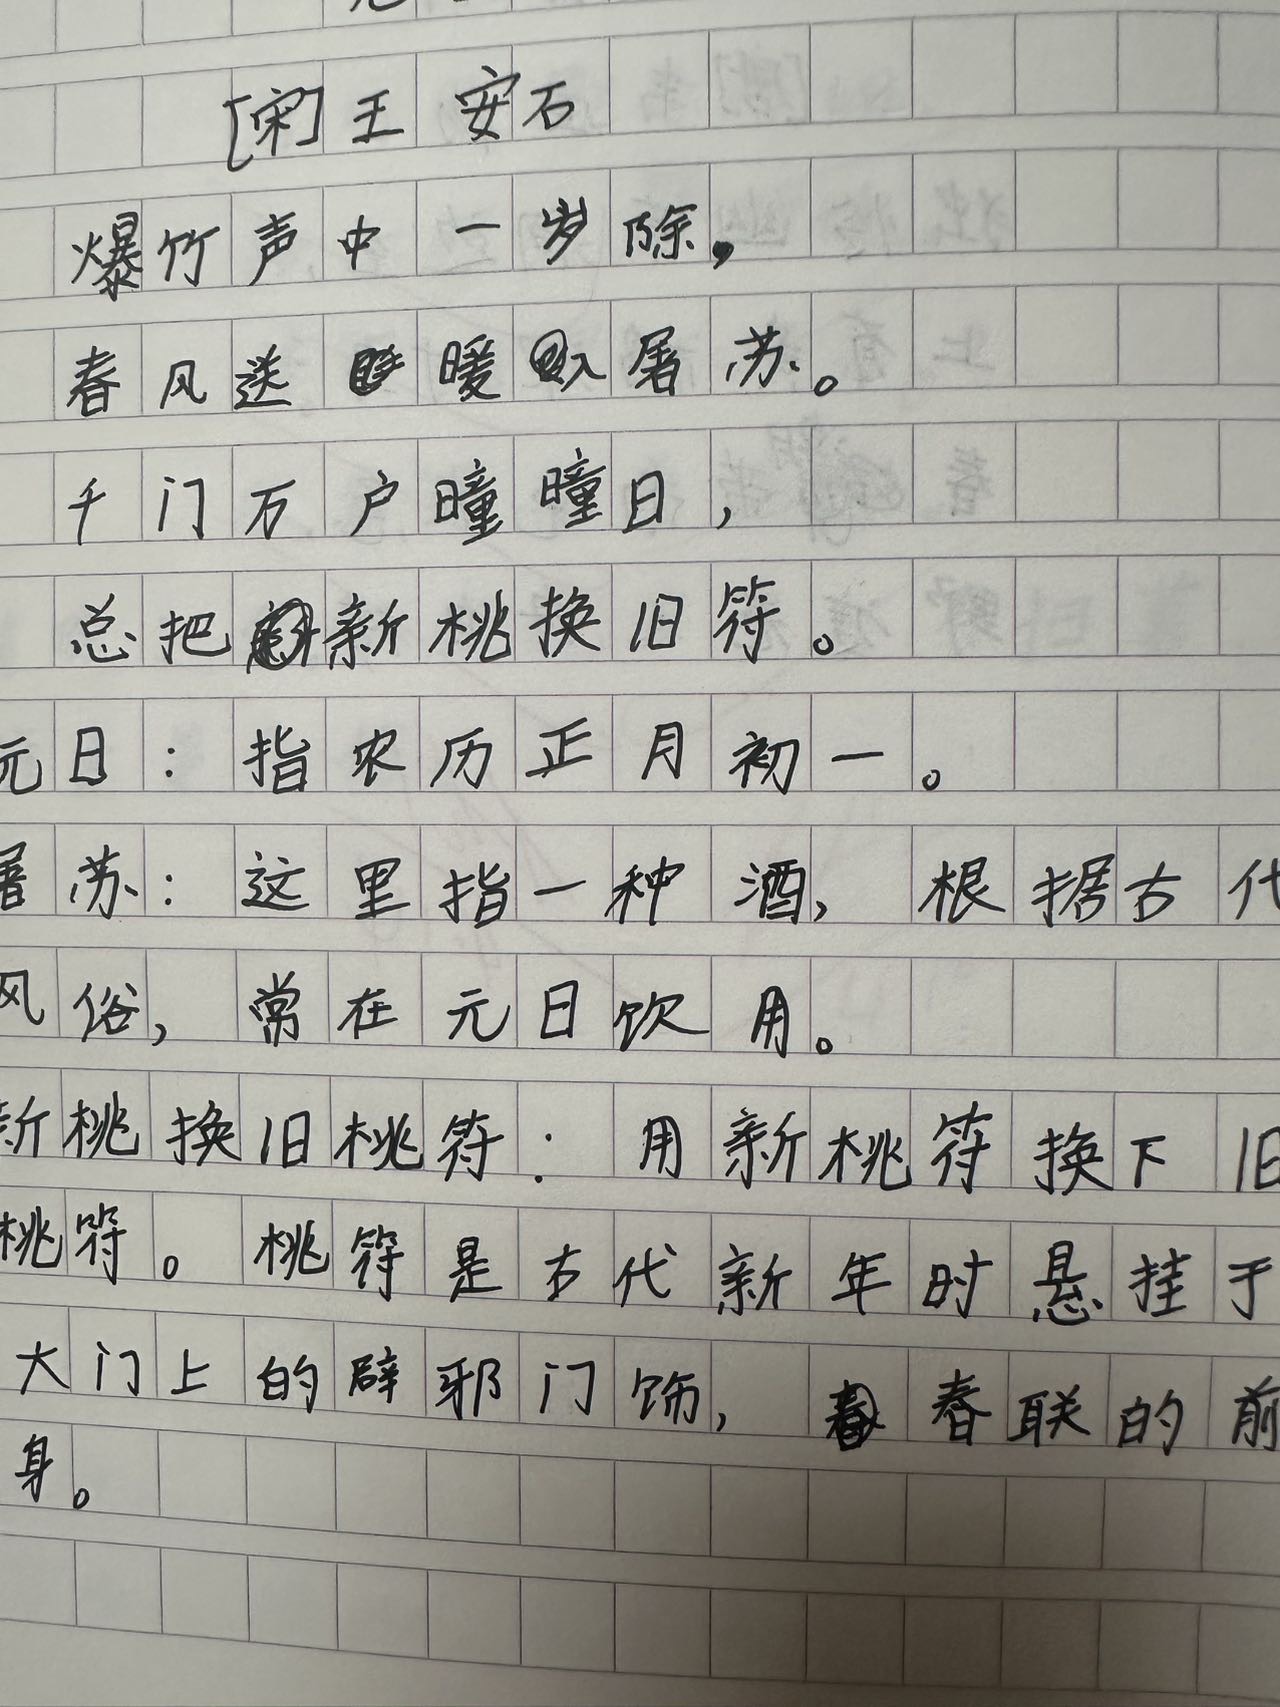 [宋]王安石
爆竹声中一岁除，
春风送暖入屠苏。
千门万户瞳瞳日，
总把新桃换旧符。
元日：指农历正月初一。
屠苏：这里指一种酒，根据古代
风俗，常在元日饮用。
新桃换旧桃符：用新桃符换下旧
桃符。桃符是古代新年时悬挂于
大门上的辟邪门饰，春联的前
身。